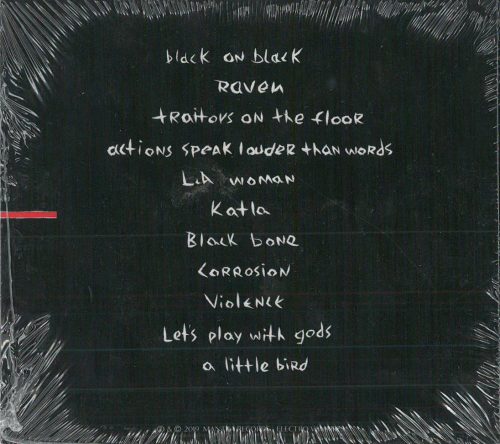 black on black
Raven
traitors on the floor
actions speak louder than words
L.A woman
Katla
Black bone
Corrosion
Violence
Let's play with gods
a little bird
℗ & © 2019